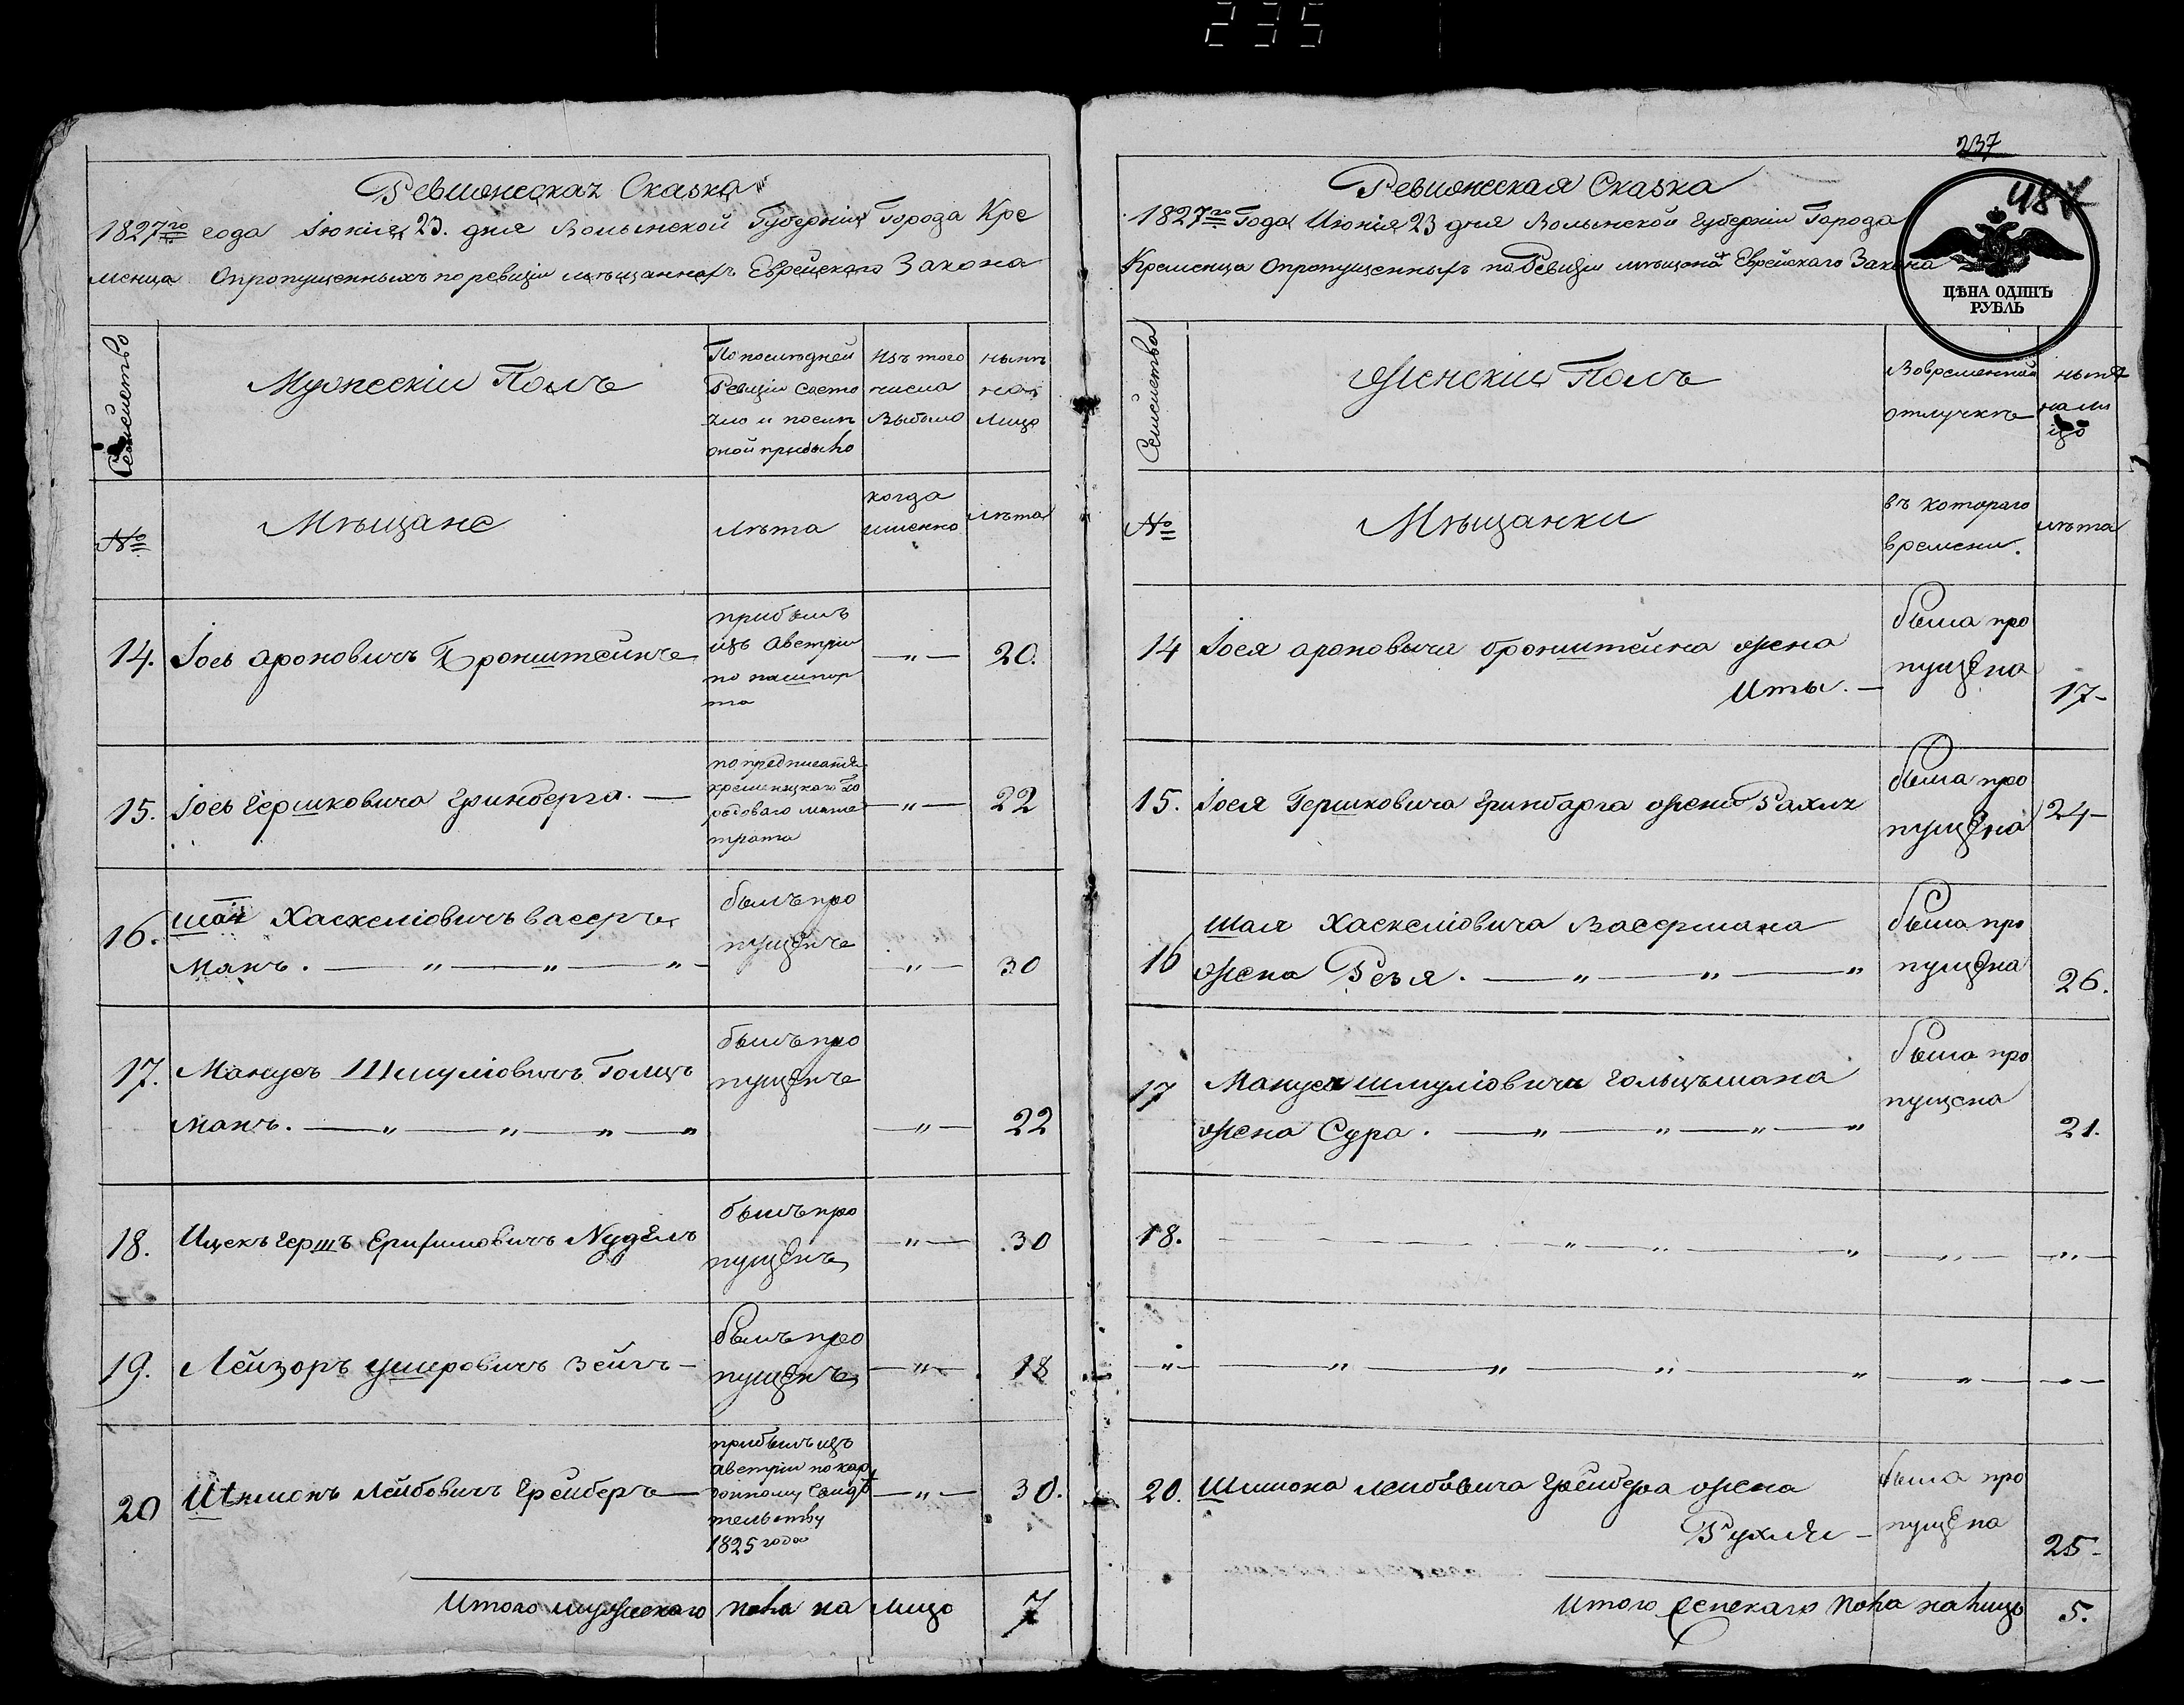 235
Ревижескаz Сказка
1827го года Іюнія 23. дня Волынской Губерніи Города Кре
менца Опропущенныхъ по ревизіи мѣщаннахъ Еврейскаго Закона
Семейство
Мужескій Полъ
По последней
Ревизіи состо
яло и после
оной прибыло
Изъ того
числа
Выбыло
нынѣ
на
Лицо
№
Мѣщане
лѣта
когда
именно
лѣта
14. Іось Ароновичъ Бронштейнъ
прибылъ
изъ Австріи
по пашпор
та
—„— 20.
15. Іось Гершковича Гринберга. —
по предписанія
кременецкаго Го
родоваго маги
трата
—„— 22
16. Шая Хаскеліовичъ Васерь
манъ. — „ — „ — „ —
былъ про
пущенъ
—„— 30
17. Манусъ Шмуліовичъ Голцъ
манъ. — „ — „ — „ — „
былъ про
пущенъ
—„— 22
18. Ицекъ Гершъ Ерихимовичъ Nудель
былъ про
пущенъ
—„— 30
19. Лейзоръ Ушеровичъ Зейгъ —
былъ про
пущенъ
—„— 18
20 Шимонъ Лейбовичъ Грейберъ —
прибылъ изъ
Австріи по кар
донному свидѣ
тельству
1825 года
—„— 30.
Итого мужескаго пола на лицо 7
237
487
ЦѢНА ОДИНЪ
РУБЛЬ
Ревижеская Сказка
1827го Года Июнія 23 дня Волынской Губерніи Города
Кременца Опропущенныхъ по Ревизіи мѣщанахъ Еврейскаго Закона
Семейства
Женскій Полъ
Вовременной
отлучке
нынѣ
на ли
цо
№
Мѣщанки
въ котораго
времени.
лѣта
14 Іося Ароновича Бронштейна жена
Иты. —
была про
пущена
17-
15. Іося Гершковича Гринбарга жена Рахля
была про
пущена
24-
16 Шая Хаскеліовича Васермана
жена Рейзя. — „ — „ — „
была про
пущена
26.
17 Мануся Шмуліовича Гольцьмана
жена Сура. — „ — „ — „ — „
была про
пущена
21.
18. — „ — „ — „ —„— —„—
—„— — „ — „ — „ — „ —„— —„—
20. Шимона Лейбовича Грейбера жена
Рухля —
была про
пущена
25-
Итого женскаго пола на лицо 5.